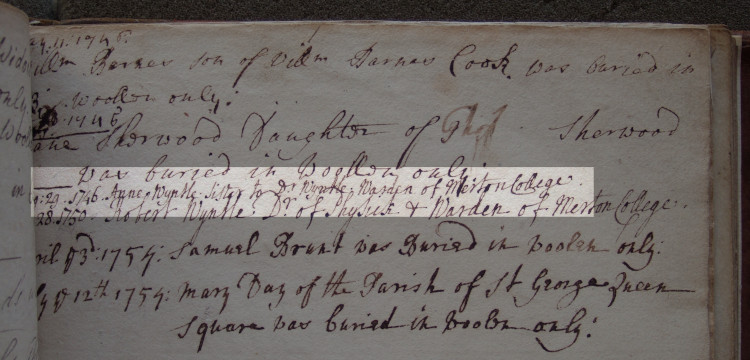 11: 1746.
Willm Barnes son of Willm Barnes Cook. was buried in
Woollen only:
1746
Jane Sherwood Daughter of Thos Sherwood
was buried in Woollen only:
29. 1746. Anne Wyntle Sister to Dr Wyntle Warden of Merton College.
28. 1750. Robert Wyntle. Dr. of Physick & Warden of Merton College.
April ye 3d: 1754: Samuel Brunt was Buried in woolen only:
ye 12th 1754: Mary Day of the Parish of St George Queen
Square was buried in woolen only: